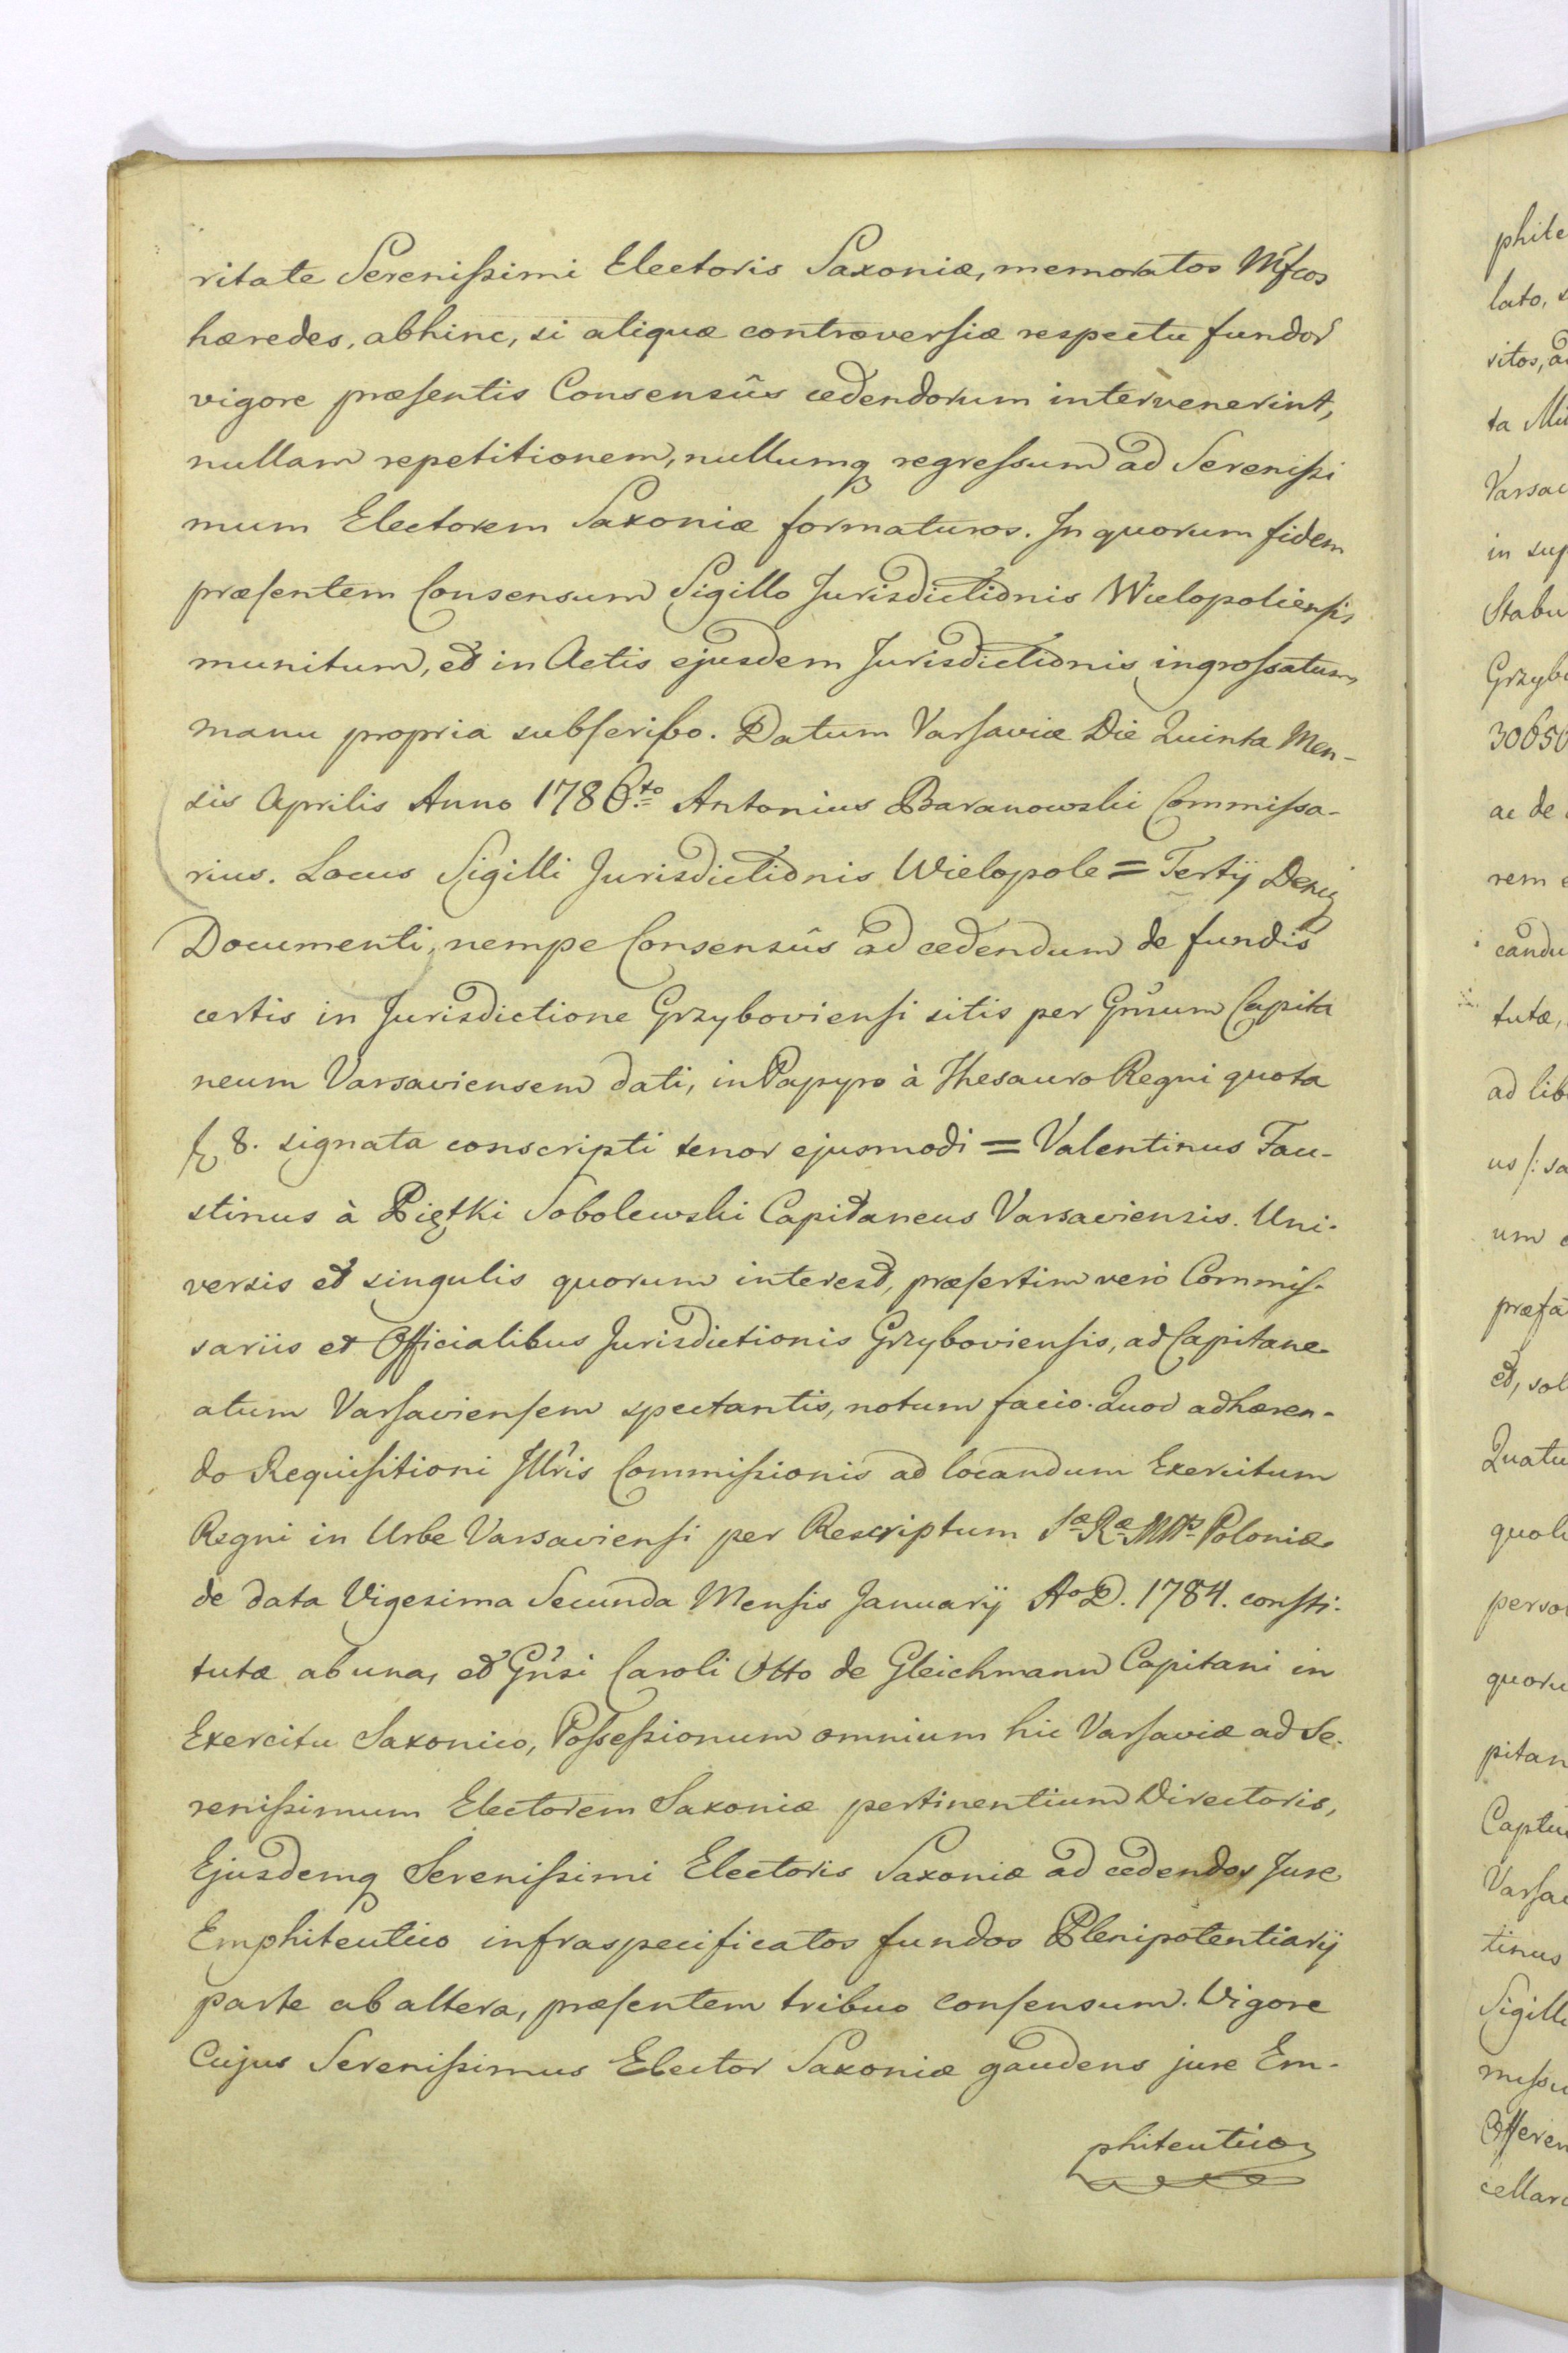 ritate Serenißimi Electoris Saxoniæ, memoratos Mfcos
hæredes, abhinc, si aliquæ controversiæ respectu fundor
vigore præsentis Consensûs cedendorum intervenerint,
nullam repetitionem, nullumq regressum ad Serenißi
mum Electorem Saxoniæ formaturos. In quorum fidem
præsentem Consensum Sigillo Jurisdictionis Wielopoliensis
munitum, et in Actis ejusdem Jurisdictionis ingrossatum,
manu propria subscribo. Datum Varsaviæ Die Quinta Men-
sis Aprilis Anno 1786.to Antonius Baranowski Commissa-
rius. Locus Sigilli Jurisdictionis Wielopole = Tertij Deniq
Documenti, nempe Consensûs ad cedendum de fundis
certis in Jurisdictione Grzyboviensi sitis per Gnsum Capita
neum Varsaviensem dati, in Papyro à Thesauro Regni quota
f 8. signata conscripti tenor ejusmodi = Valentinus Fau-
stinus à Piętki Sobolewski Capitaneus Varsaviensis. Uni-
versis et singulis quorum interest, præsertim verò Commis-
sariis et Officialibus Jurisdictionis Grzyboviensis, ad Capitane
atum Varsaviensem spectantis, notum facio. Quod adhæren-
do Requisitioni Illris Commißionis ad locandum Exercitum
Regni in Urbe Varsaviensi per Rescriptum Sæ Ræ Mtis Poloniæ
de data Vigesima Secunda Mensis Januarij Ao D. 1784. consti-
tutæ ab una, et Gnsi Caroli Otto de Gleichmann Capitani in
Exercitu Saxonico, Posseßionum omnium hic Varsaviæ ad Se-
renißimum Electorem Saxoniæ pertinentium Directoris,
Ejusdemq Serenißimi Electoris Saxoniæ ad cedendos Jure
Emphiteutico infraspecificatos fundos Plenipotentiarij
parte ab altera, præsentem tribuo consensum. Vigore
Cujus Serenißimus Elector Saxoniæ gaudens jure Em-
phiteutico
phite
lato,
sitos,
ta
Varsav
in sup
Stabu
Grzybo
30650
ac de
rem
candu
tutæ,
ad lib
us /: sa
um
præfa
et, sol
Quatu
quoli
perso
quoru
pitan
Captu
Varsa
tinus
Sigilli
missu
Offeren
cellar